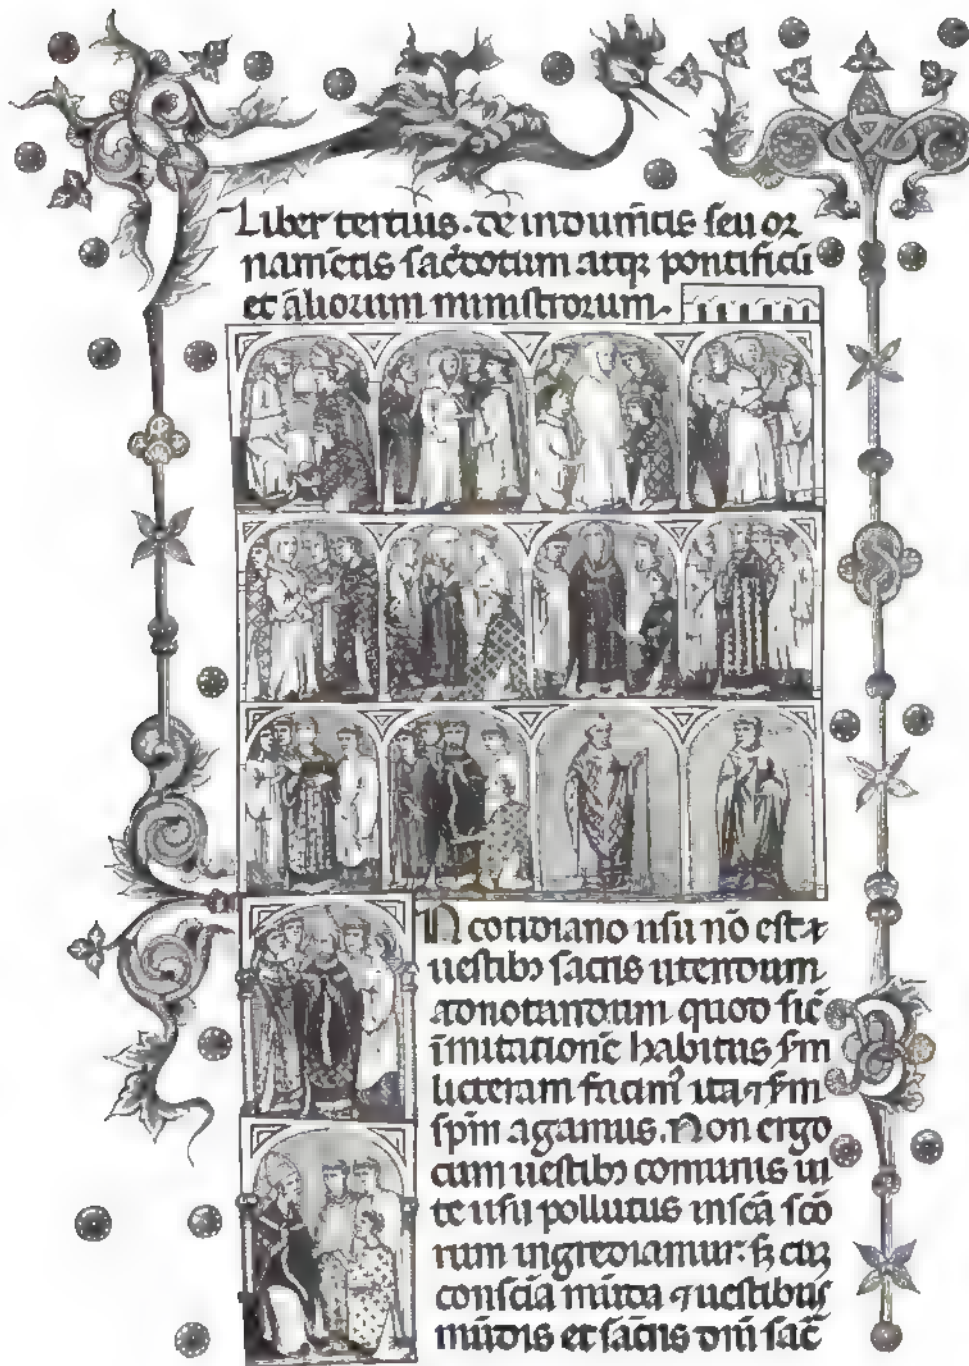 Liber tertius. de indumētis seu or
namētis sac̄dotum atqꝫ pontificū
et āliorum ministrorum.
N cotidiano usu nō est ⁊
uestibꝫ sacris utendum
adnotandum quod sic̄
imitationē habitus s̄m
licteram facimꝰ ita ⁊ s̄m
sp̄m agamus. Non ergo
cum uestibꝫ comunis ui
te usu pollutus in sc̄a sc̄o
rum ingrediamur: sꝫ cuꝫ
consciā mūda ⁊ uestibus
mūdis et sacris dn̄i sac̄